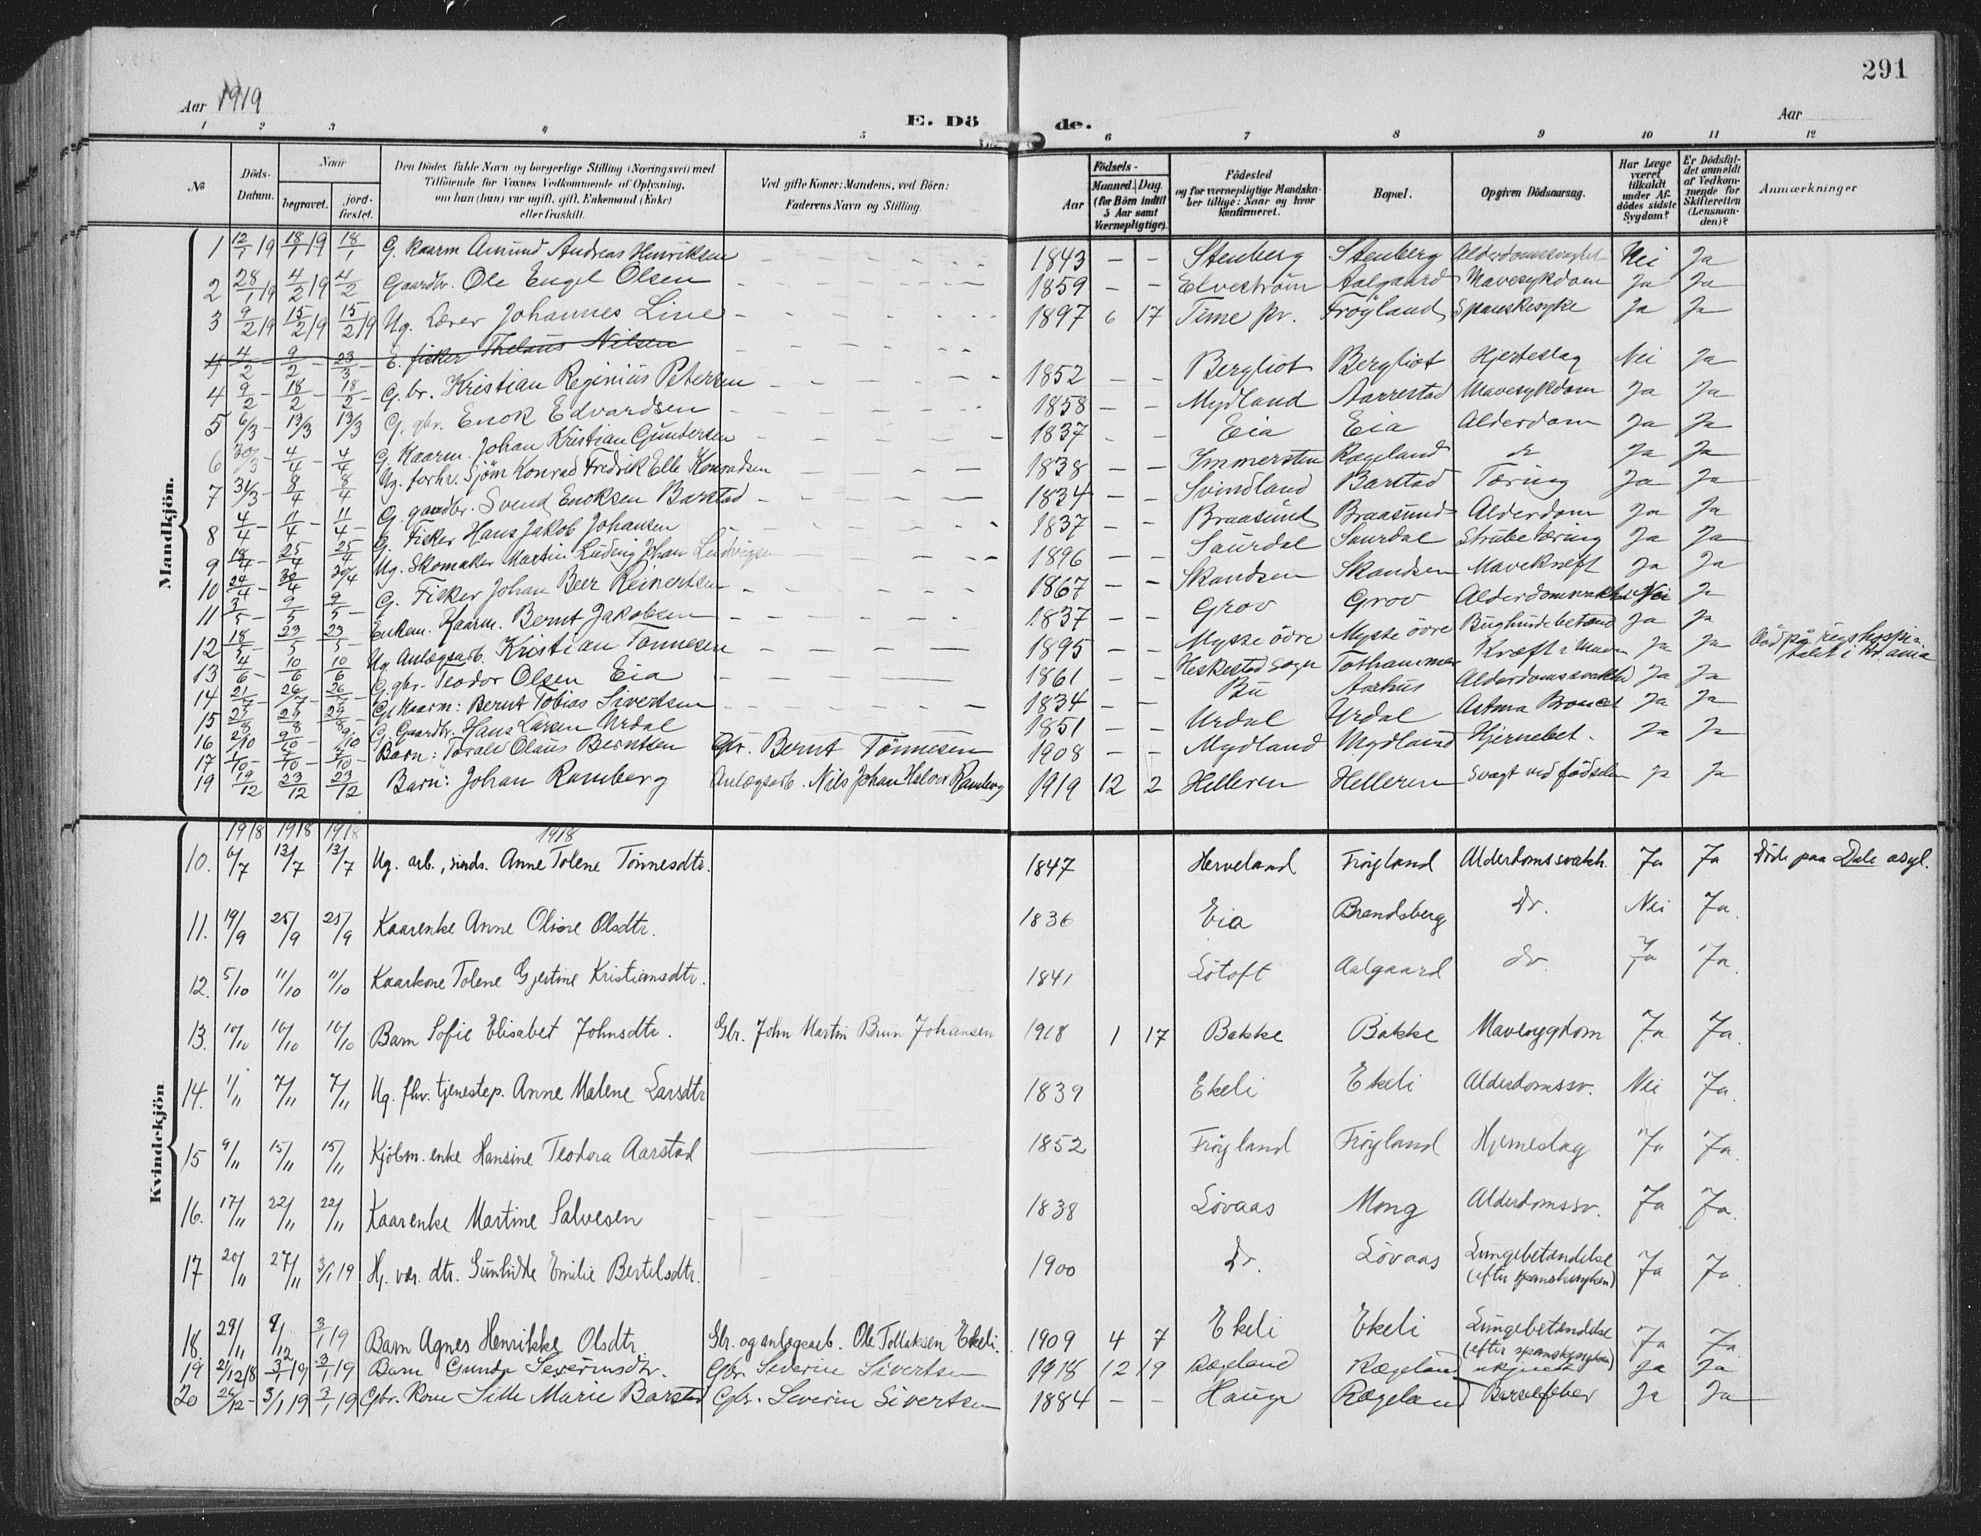 291
Aar 1919
E. Dö de.
Aar
1 2 3 4 5 6 7 8 9 10 11 12
№
Döds-Datum.
Naar
begravet.
jord-fæstet.
Den Dödes fulde Navn og borgerlige Stilling (Næringsvei) med Tilföiende for Voxnes Vedkommende af Oplysning, om han (hun) var ugift, gift, Enkemand (Enke) eller fraskilt.
Ved gifte Koner: Mandens, ved Börn: Faderens Navn og Stilling.
Födsels-
Aar
Maaned. Dag.
(for Börn indtil 5 Aar samt Værnepligtige).
Födested og for værnepligtige Mandskaber tillige: Naar og hvor konfirmeret.
Bopæl.
Opgiven Dödsaarsag.
Har Læge været tilkaldt under Afdödes sidste Sygdom?
Er Dödsfaldet anmeldt af Vedkommende for Skifteretten (Lensmanden)?
Anmærkninger
Mandkjön.
1 12/1 19 18/1 19 18/1 G. Kaarm Amund Andreas Henriksen 1843 Stenberg Stenberg Nei Ja
2 28/1 19 4/2 19 4/2 Gaardbr. Ole Engel Olsen 1859 Elveström Aalgaard Mavesykdom Ja Ja
3 9/2 19 15/2 19 15/2 19 Ug. Lærer Johannes Line 1897 6 17 Time pr. Fröyland Spanskesyke Ja Ja
4 4/2 9/2 23/3 E. fisker Thelaus Nilsen 1852 Bergliot Bergliot Hjerteslag Nei Ja
4 9/2 18/2 18/2 G. br. Kristian Reginius Petersen 1858 Mydland Aarrestad Mavesykdom Ja Ja
5 6/3 13/3 13/3 G. gbr. Enok Edvardsen 1837 Eia Eia Alderdom Ja Ja
6 30/3 4/4 4/4 G. Kaarm. Johan Kristian Gundersen 1838 Immersten Rægeland do Ja Ja
7 31/3 8/4 8/4 Ug. forhv. Sjöm Konrad Fredrik Elle Konradsen 1834 Svindland Barstad Tæring Ja Ja
8 4/4 11/4 11/4 G. gaardbr. Svend Enoksen Barstad 1837 Braasund Braasund Alderdom Ja Ja
9 18/4 25/4 25/4 G. Fisker Hans Jakob Johansen 1896 Saurdal Saurdal Strubetæring Ja Ja
10 24/4 30/4 30/4 Ug. Skomaker Martin Ludvig Johan Ludvigsen 1867 Skandsen Skandsen Mavekreft Ja Ja
11 3/5 9/5 9/5 G. Fisker Johan Beer Reinertsen 1837 Grov Grov Nei Ja
12 18/5 23/5 23/5 Enkem. Kaarm. Bernt Jakobsen 1895 Mysse övre Mysse övre Ja Ja
13 4/6 10/6 10/6 Ug. Anlægsarb. Kristian Tönnesen 1861 Heskestad sogn Kræft i Ja Ja
14 21/7 26/7 26/7 G. gbr. Teodor Olsen Eia 1834 Bu Aarhus Ja Ja
15 G. Kaarm: Bernt Tobias Sivertsen 1851 Urdal Urdal Astma Ja Ja
16 G. Gaardbr. Hans Larsen Urdal 1908 Mydland Mydland Hjernebet. Ja Ja
17 Barn: Toralf Olaus Berntsen Gbr. Bernt Tönnesen
19 19/12 23/12 23/12 Barn: Johan Ramberg Anlægsarb. Nils Johan Halvor Ramberg 1919 12 2 Helleren Helleren Svagt ved födselen Ja Ja
Kvindekjön
1918 1918 1918 1918
10. 6/7 13/7 13/7 Ug. arb., sinds. Anne Tolene Tönnesdtr. 1847 Herveland Fröyland Alderdomssvakh. Ja Ja Döde paa Dale asyl.
11. 19/9 25/9 25/9 Kaarenke Anne Olvine Olsdtr. 1836 Eia Brandsberg Do. Nei Ja.
12. 5/10 11/10 11/10 Kaarkone Tolene Gjertine Kristiansdtr. 1841 Lötoft Aalgaard do. Ja Ja.
13. 10/10 10/10 10/10 Barn Sofie Elisabet Johnsdtr. Gbr. John Martin Brun Johansen 1918 1 17 Bakke Bakke Mavesygdom Ja Ja.
14. 1/11 7/11 7/11 Ug. fhv. tjenestep. Anne Malene Larsdtr 1839 Ekeli Ekeli Alderdomssv. Nei Ja.
15 9/11 15/11 15/11 Kjöbm. enke Hansine Teodora Aarstad 1852 Fröyland Fröyland Hjerneslag Ja Ja.
16. 17/11 22/11 22/11 Kaarenke Martine Salvesen 1838 Lövaas Mong Alderdomssv. Ja Ja.
17 20/11 27/11 3/1 19 Hj. vær. dtr. Gunhilde Emilie Bertelsdtr. 1900 Do. Lövaas Lungebetændelse (efter spanskesyken) Ja Ja.
18. 29/11 9/12 3/1 19 Barn Agnes Henrikke Olsdtr. Gbr. og anlægsarb. Ole Tollaksen Ekeli. 1909 4 7 Ekeli Ekeli Lungebetændelse (efter spanskesyken) Ja Ja.
19 21/12 18 3/1 19 3/1 19 Barn Gunda Severinsdtr. Gbr. Severin Sivertsen 1918 12 19 Rægeland Rægeland ukjendt Ja Ja
20 26/12 3/1 19 3/1 19 Gbr. kone Sille Marie Barstad Gbr. Severin Sivertsen 1884 Hauge Rægeland Barselfeber Ja Ja